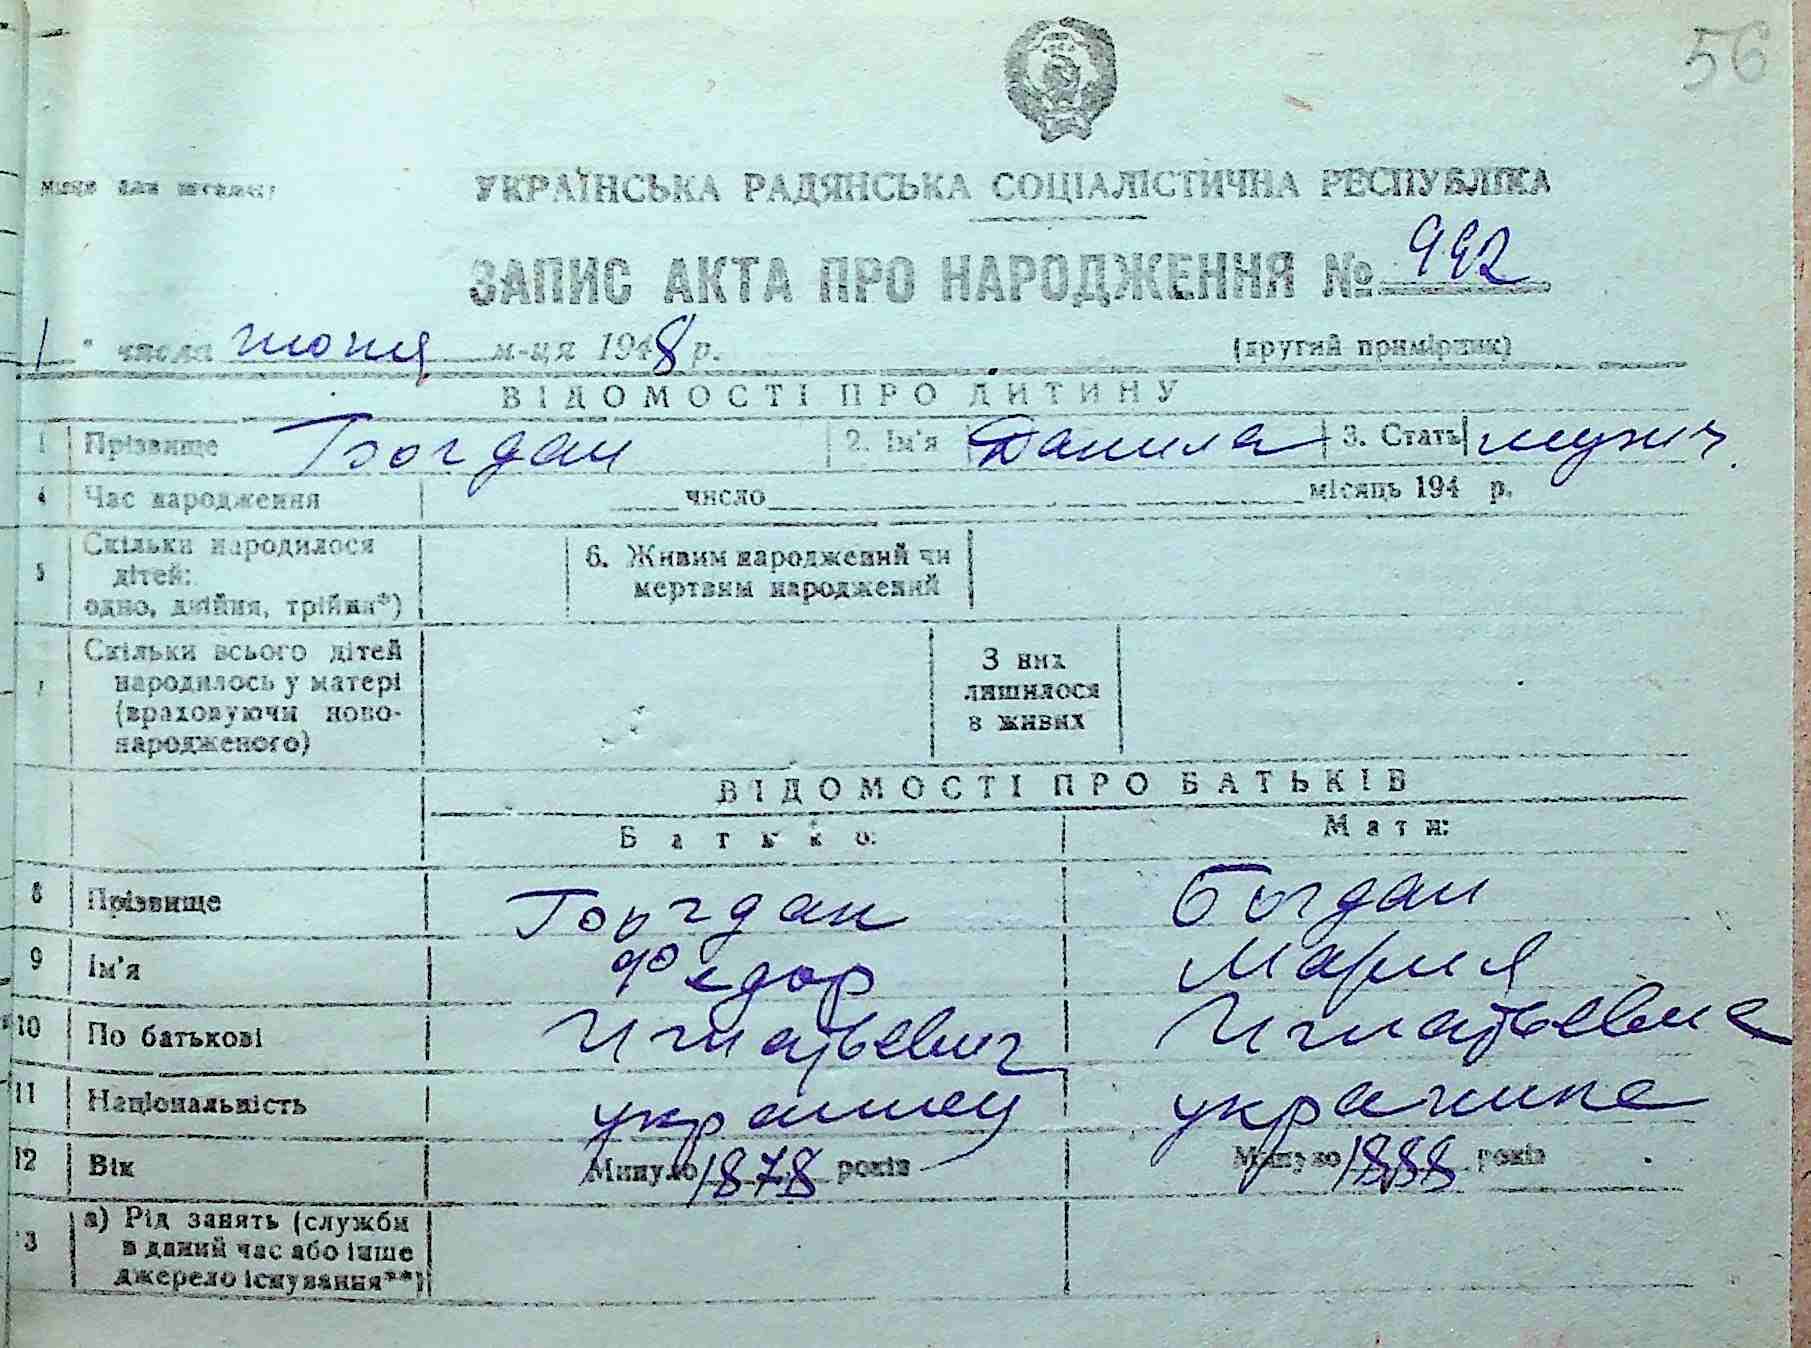 56
Місце для штампу
УКРАЇНСЬКА РАДЯНСЬКА СОЦІАЛІСТИЧНА РЕСПУБЛІКА
ЗАПИС АКТА ПРО НАРОДЖЕННЯ № 992
1 " числа июня м-ця 1948 р. (другий примірник)
ВІДОМОСТІ ПРО ДИТИНУ
1 Прізвище Богдан 2. Ім'я Данила 3. Стать мужич.
4 Час народження число місяць 194 р.
5 Скільки народилося дітей: одно, двійня, трійня*) 6. Живим народжений чи мертвим народжений
7 Скільки всього дітей народилось у матері (враховуючи новонародженого) З них лишилося в живих
ВІДОМОСТІ ПРО БАТЬКІВ
Батько: Мати:
8 Прізвище Богдан Богдан
9 Ім'я Федор Мария
10 По батькові Игнатьевич Игнатьевна
11 Національність украинец украинка
12 Вік Минуло 1878 років Минуло 1888 років
13 а) Рід занять (служби в даний час або інше джерело існування**)